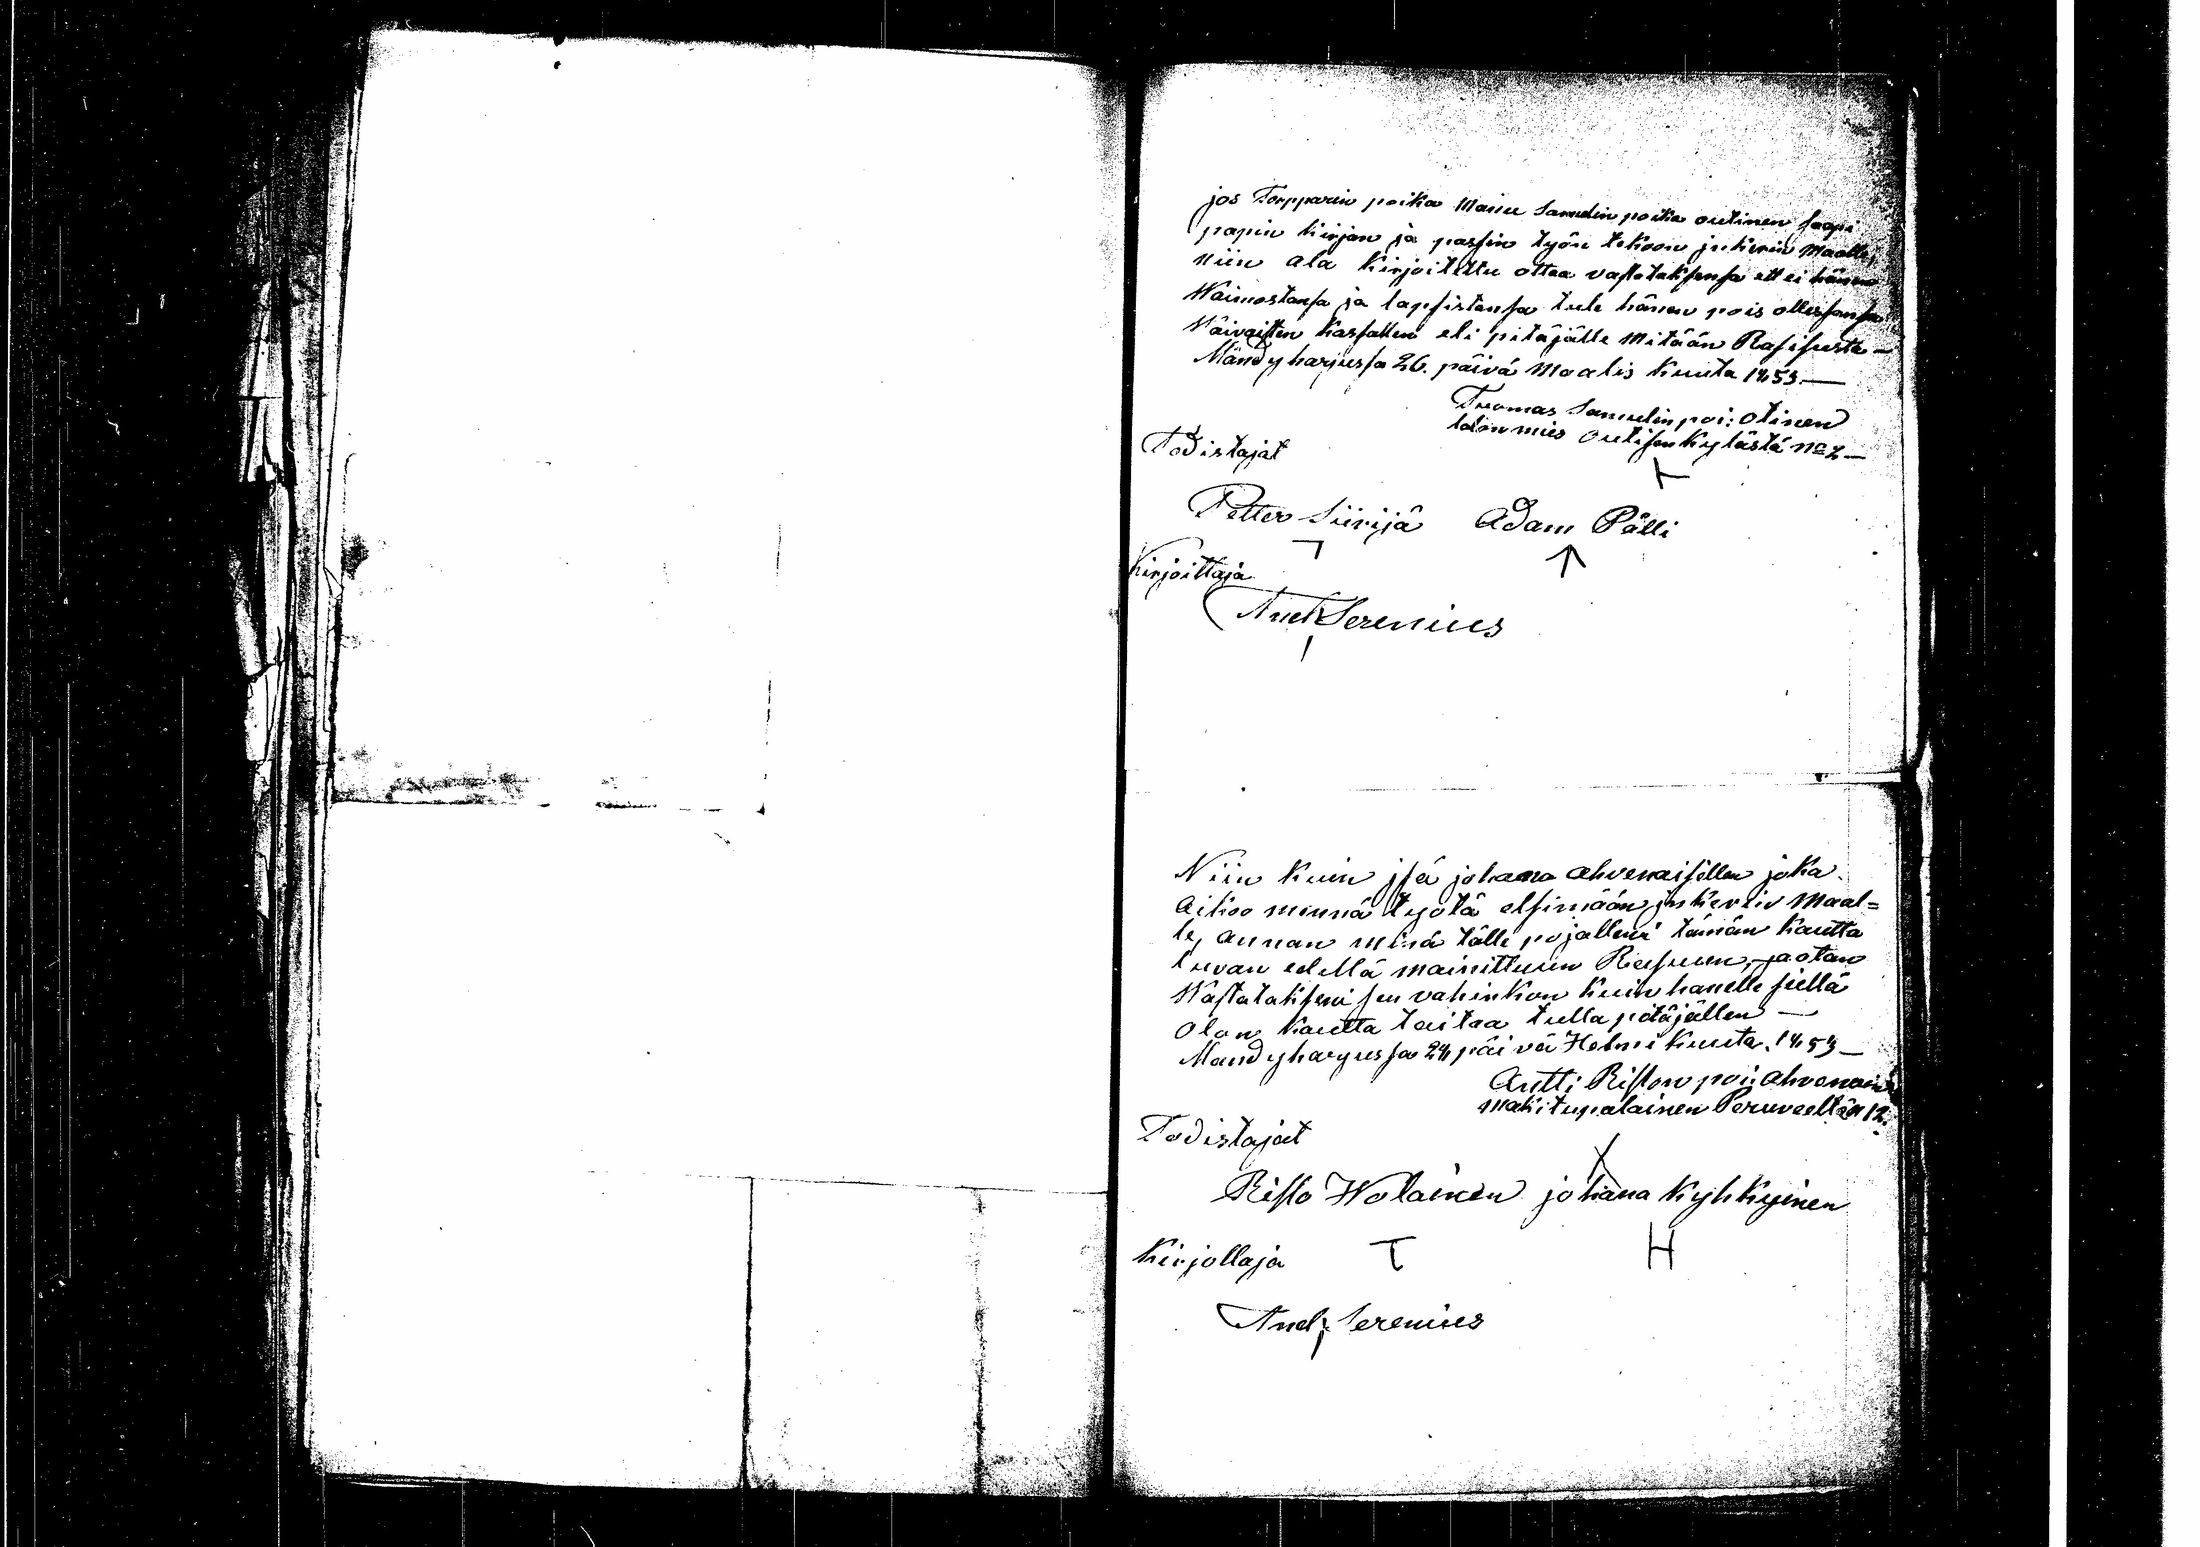 jos Torpparin poika Manu Samulin poika outinen saapi
papin kirjan ja passin työn tekoon jnkerin Maalle,
niin ala kirjoitettu ottaa vastataksensa ett ei hänen
Waimostansa ja lapsistansa tule hänen pois ollessansa
Väivaisten kassallen eli pitäjälle mitään Rasisusta —
Mändyharjussa 26. päivä Maalis kuuta 1853 —
Tuomas Samulin poi: Otinen
talon mies Outisen kylästä No 2 —
Todistajat
Petter Siirijä Adam Pälli
Kirjoittaja
And Serenius
Niin kuin jsä johana Ahvenaisellen joka
Aikoo mennä työtä etsimään jnkeriin Maal=
le, annan minä tälle pojalleni tämän kautta
luvan edellä mainittuun Reisuun, ja otan
Wastatakseni sen vahinkon kuin hanelle siellä
Olon kautta taitaa tulla pitäjällen —
Mandyharjussa 24 päivä Helmi kuuta 1853 —
Antti Riston poi: Ahvenain
makitupalainen Peruveeltä N 12.
Todistajat
Risto Wolainen johana Kyhkyinen
T H
Kirjottaja
And: Serenius